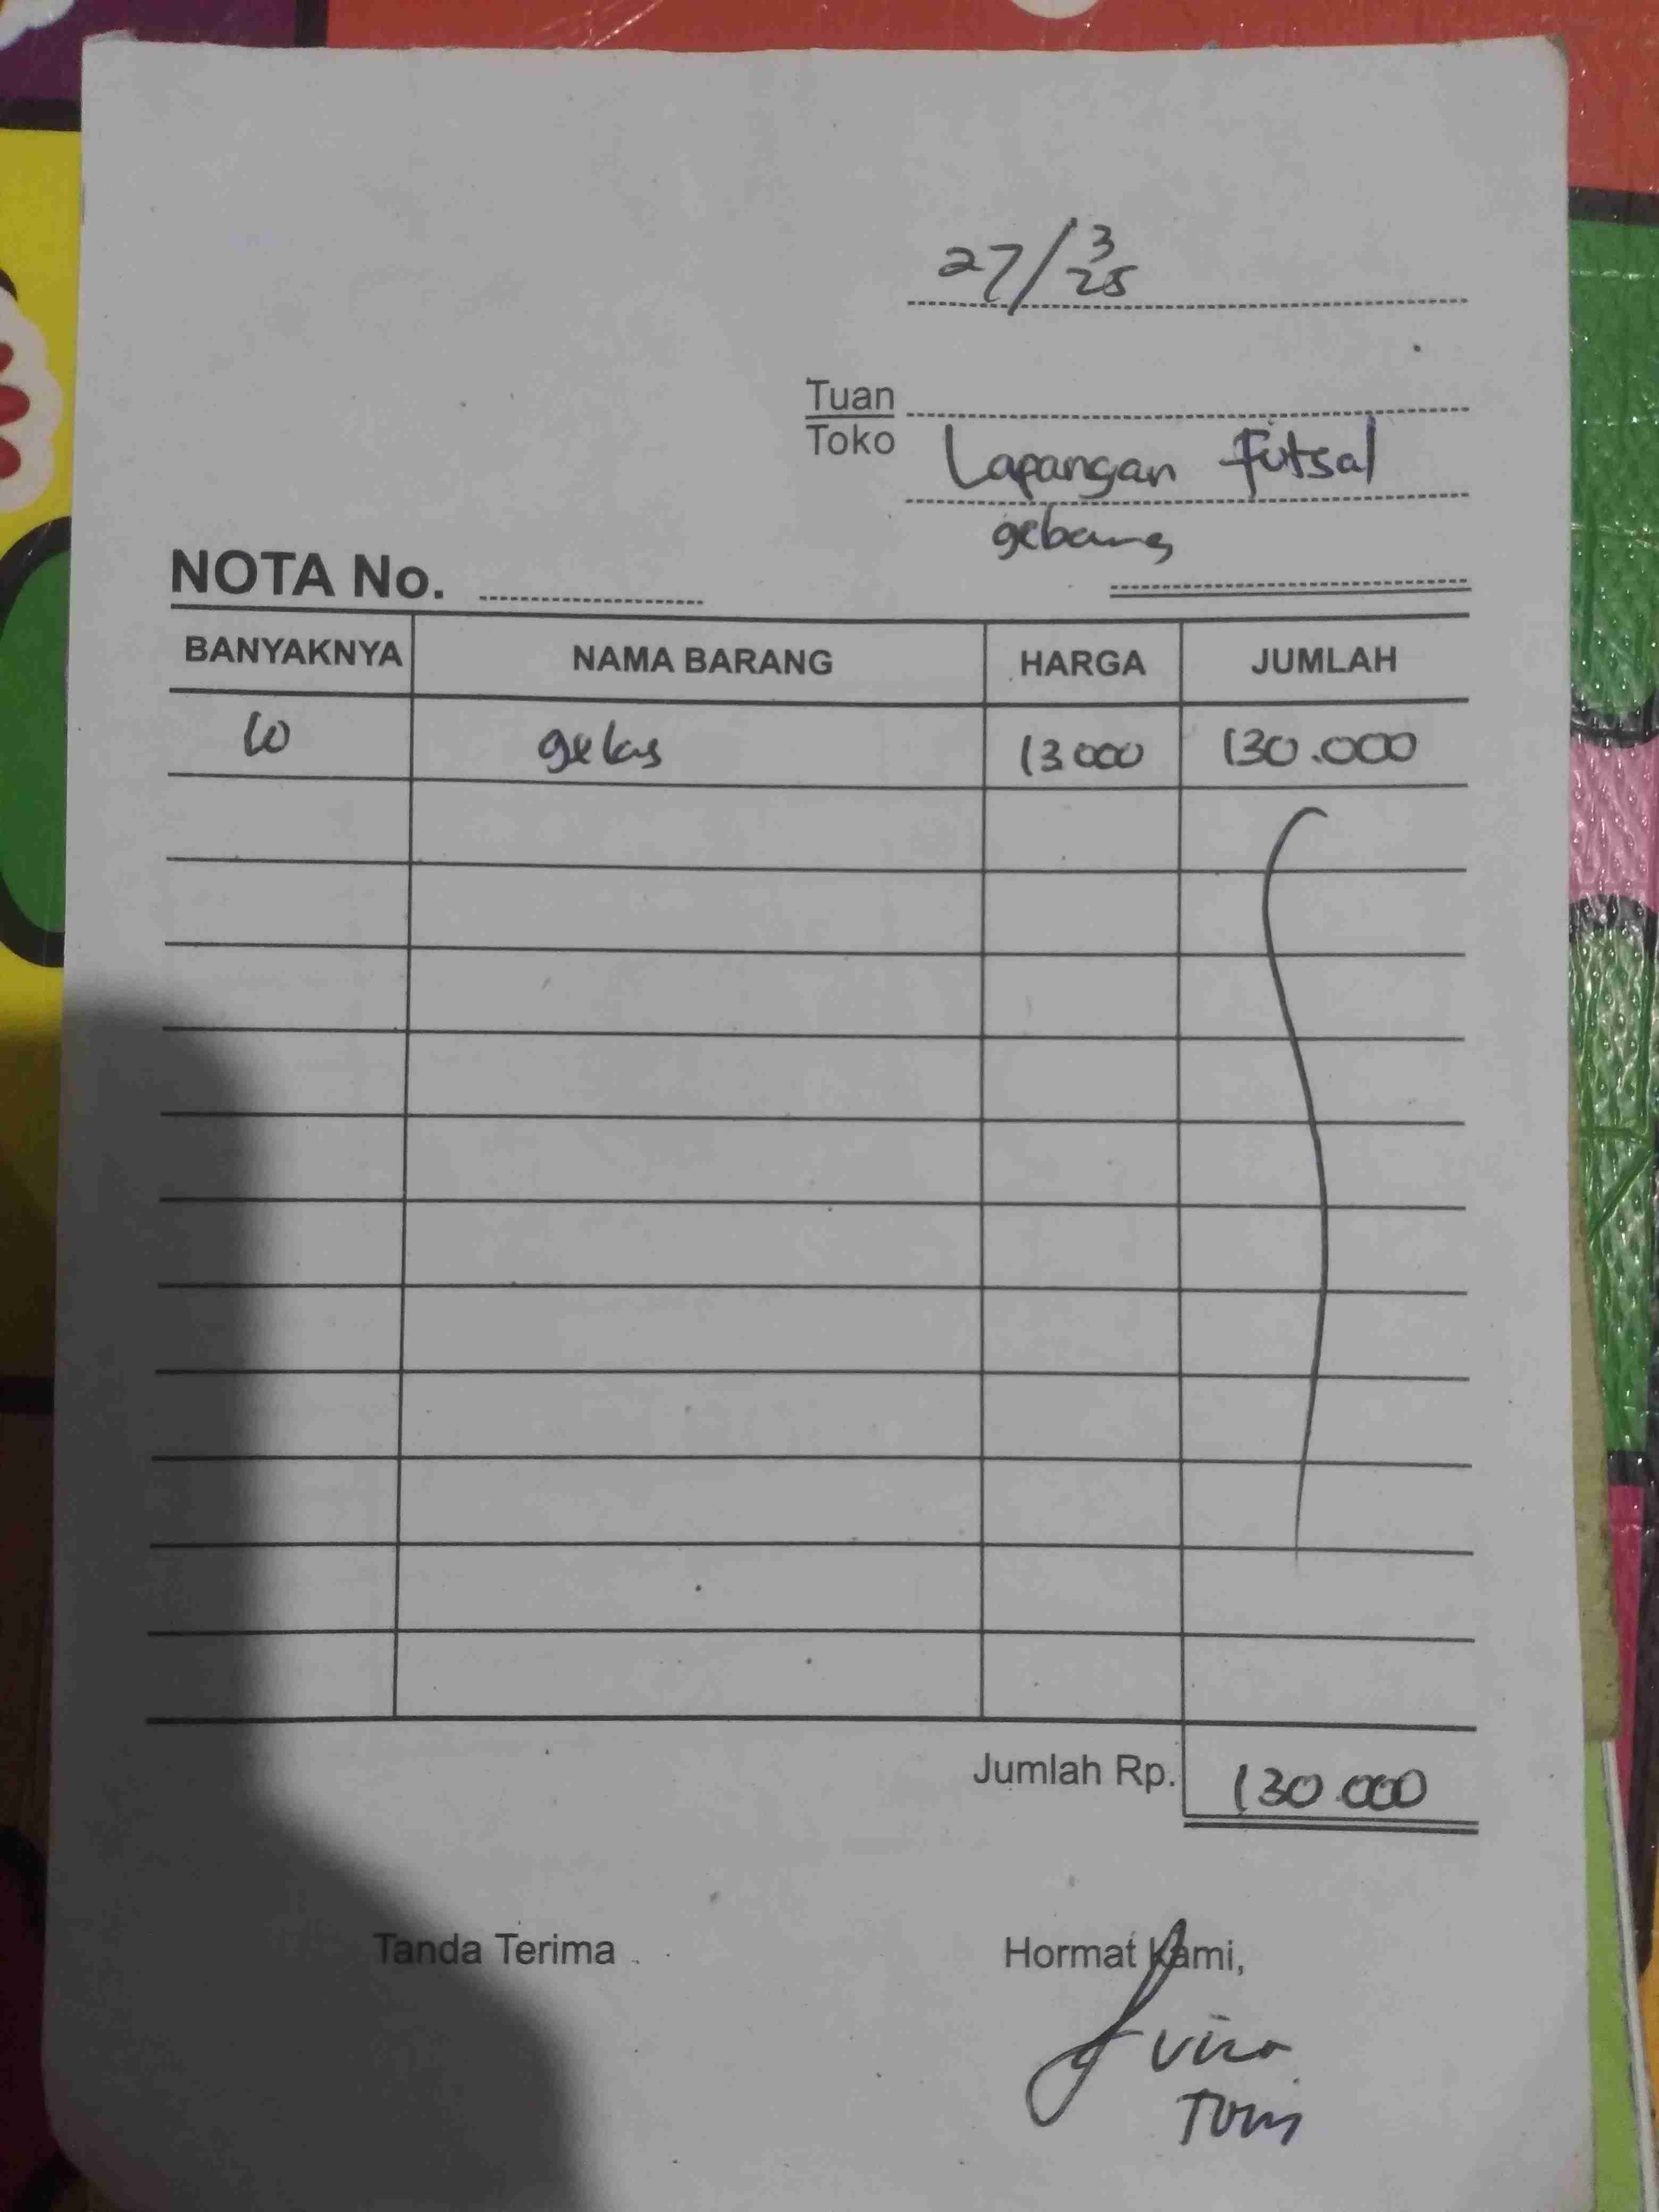 27/3
25
Tuan
Toko Lapangan Futsal
gebang
NOTA No.
BANYAKNYA NAMA BARANG HARGA JUMLAH
10 gelas 13000 130.000
Jumlah Rp. 130.000
Tanda Terima Hormat Kami,